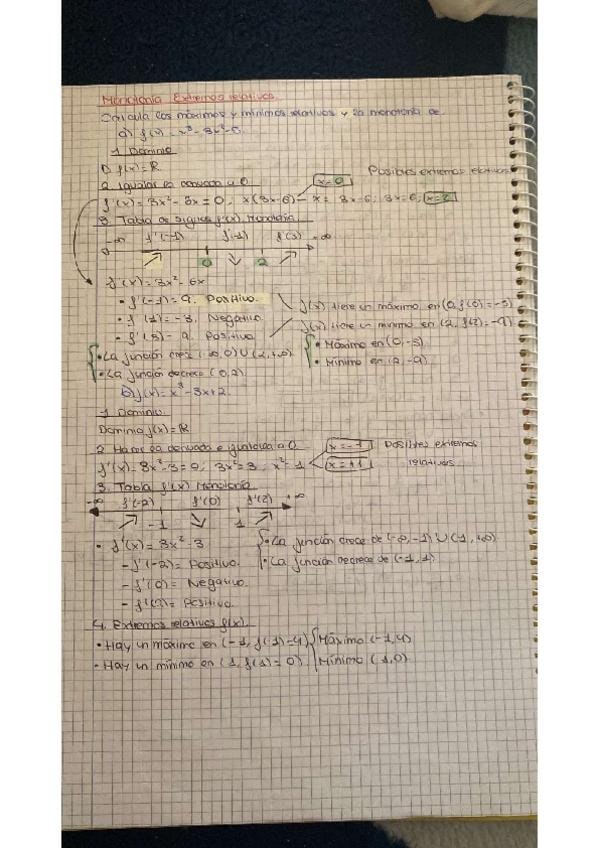 Monotonía Extremos relativos.
Calcula los máximos y mínimos relativos y la monotonía de.
a) f(x) = x³ - 3x² - 5
1. Dominio
D f(x) = R
Posibles extremos relativos
2. Igualar la derivada a 0
x = 0
f'(x) = 3x² - 6x = 0; x(3x-6) 3x-6; 3x = 6; x = 2
3. Tabla de signos f'(x). Monotonía
-∞ f'(-1) f'(3)
0 2
f'(x) = 3x² - 6x
• f'(-1) = 9. Positivo.
f(x) tiene un máximo en (0, f(0) = -5)
• f'(1) = -3. Negativo.
f(x) tiene un mínimo en (2, f(2) = -9)
• f'(3) = 9. Positivo.
• Máximo en (0, -5)
• La función crece (-∞, 0) U (2, +∞)
• Mínimo en (2, -9)
• La función decrece (0, 2).
b) f(x) = x³ - 3x + 2.
1. Dominio
Dominio f(x) = R
2. la derivada e igualarla a 0
x = -1
Posibles extremos
f'(x) = 3x² - 3 = 0; 3x² = 3; x² = 1
x = +1
relativos
3. Tabla f'(x) Monotonía
-∞ f'(-2) f'(0) f'(2) +∞
-1 1
• f'(x) = 3x² - 3
• La función crece de (-∞, -1) U (1, +∞)
- f'(-2) = Positivo.
• La función decrece de (-1, 1)
- f'(0) = Negativo.
- f'(2) = Positivo.
4. Extremos relativos f(x).
• Hay un máximo en (-1, f( 1) = 4) Máximo (-1, 4)
• Hay un mínimo en (1, f(1) = 0) Mínimo (1, 0)